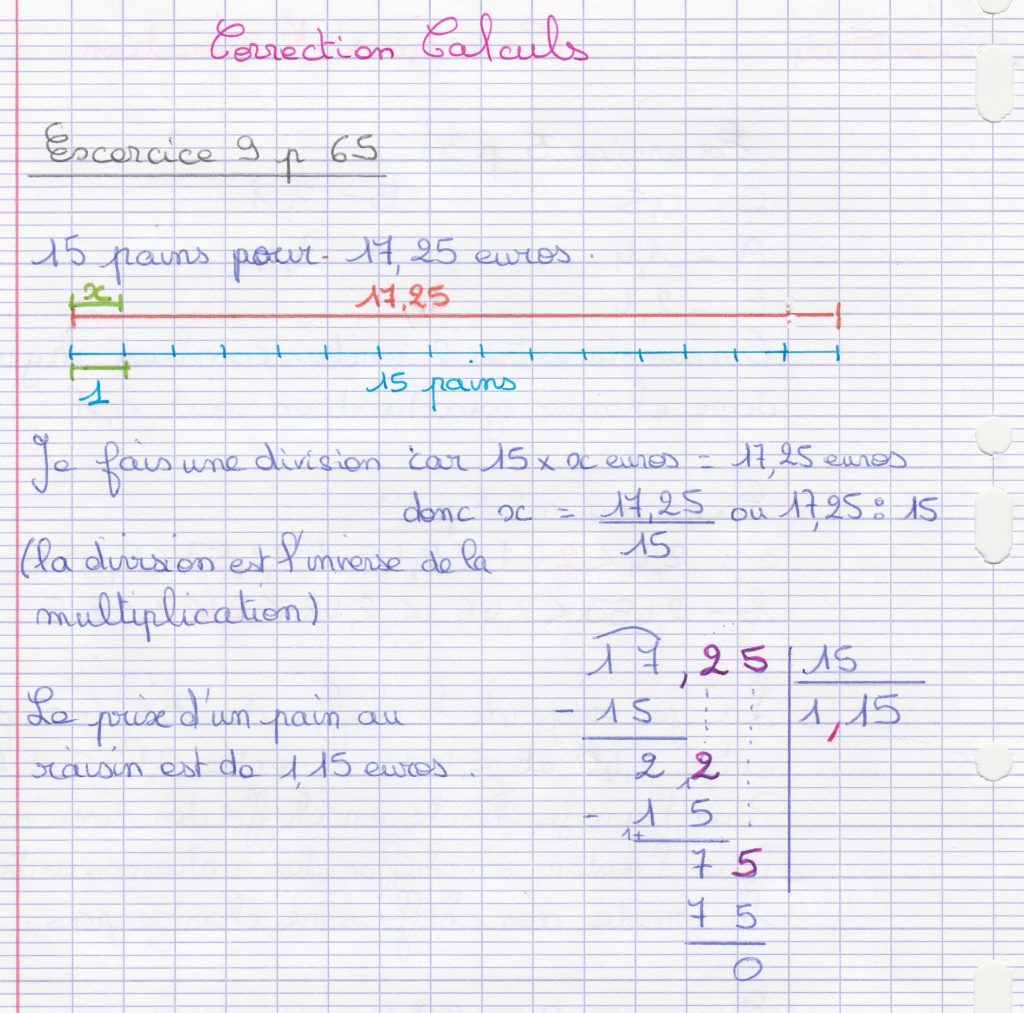 Correction Calculs
Excercice 9 p 65
15 pains pour 17,25 euros.
x
17,25
1
15 pains
Je fais une division car 15 × x euros = 17,25 euros
donc x = 17,25 / 15 ou 17,25 : 15
(la division est l'inverse de la
multiplication)
17,25 | 15
- 15 | 1,15
2 2
- 1 5
7 5
7 5
0
Le prix d'un pain au
raisin est de 1,15 euros.